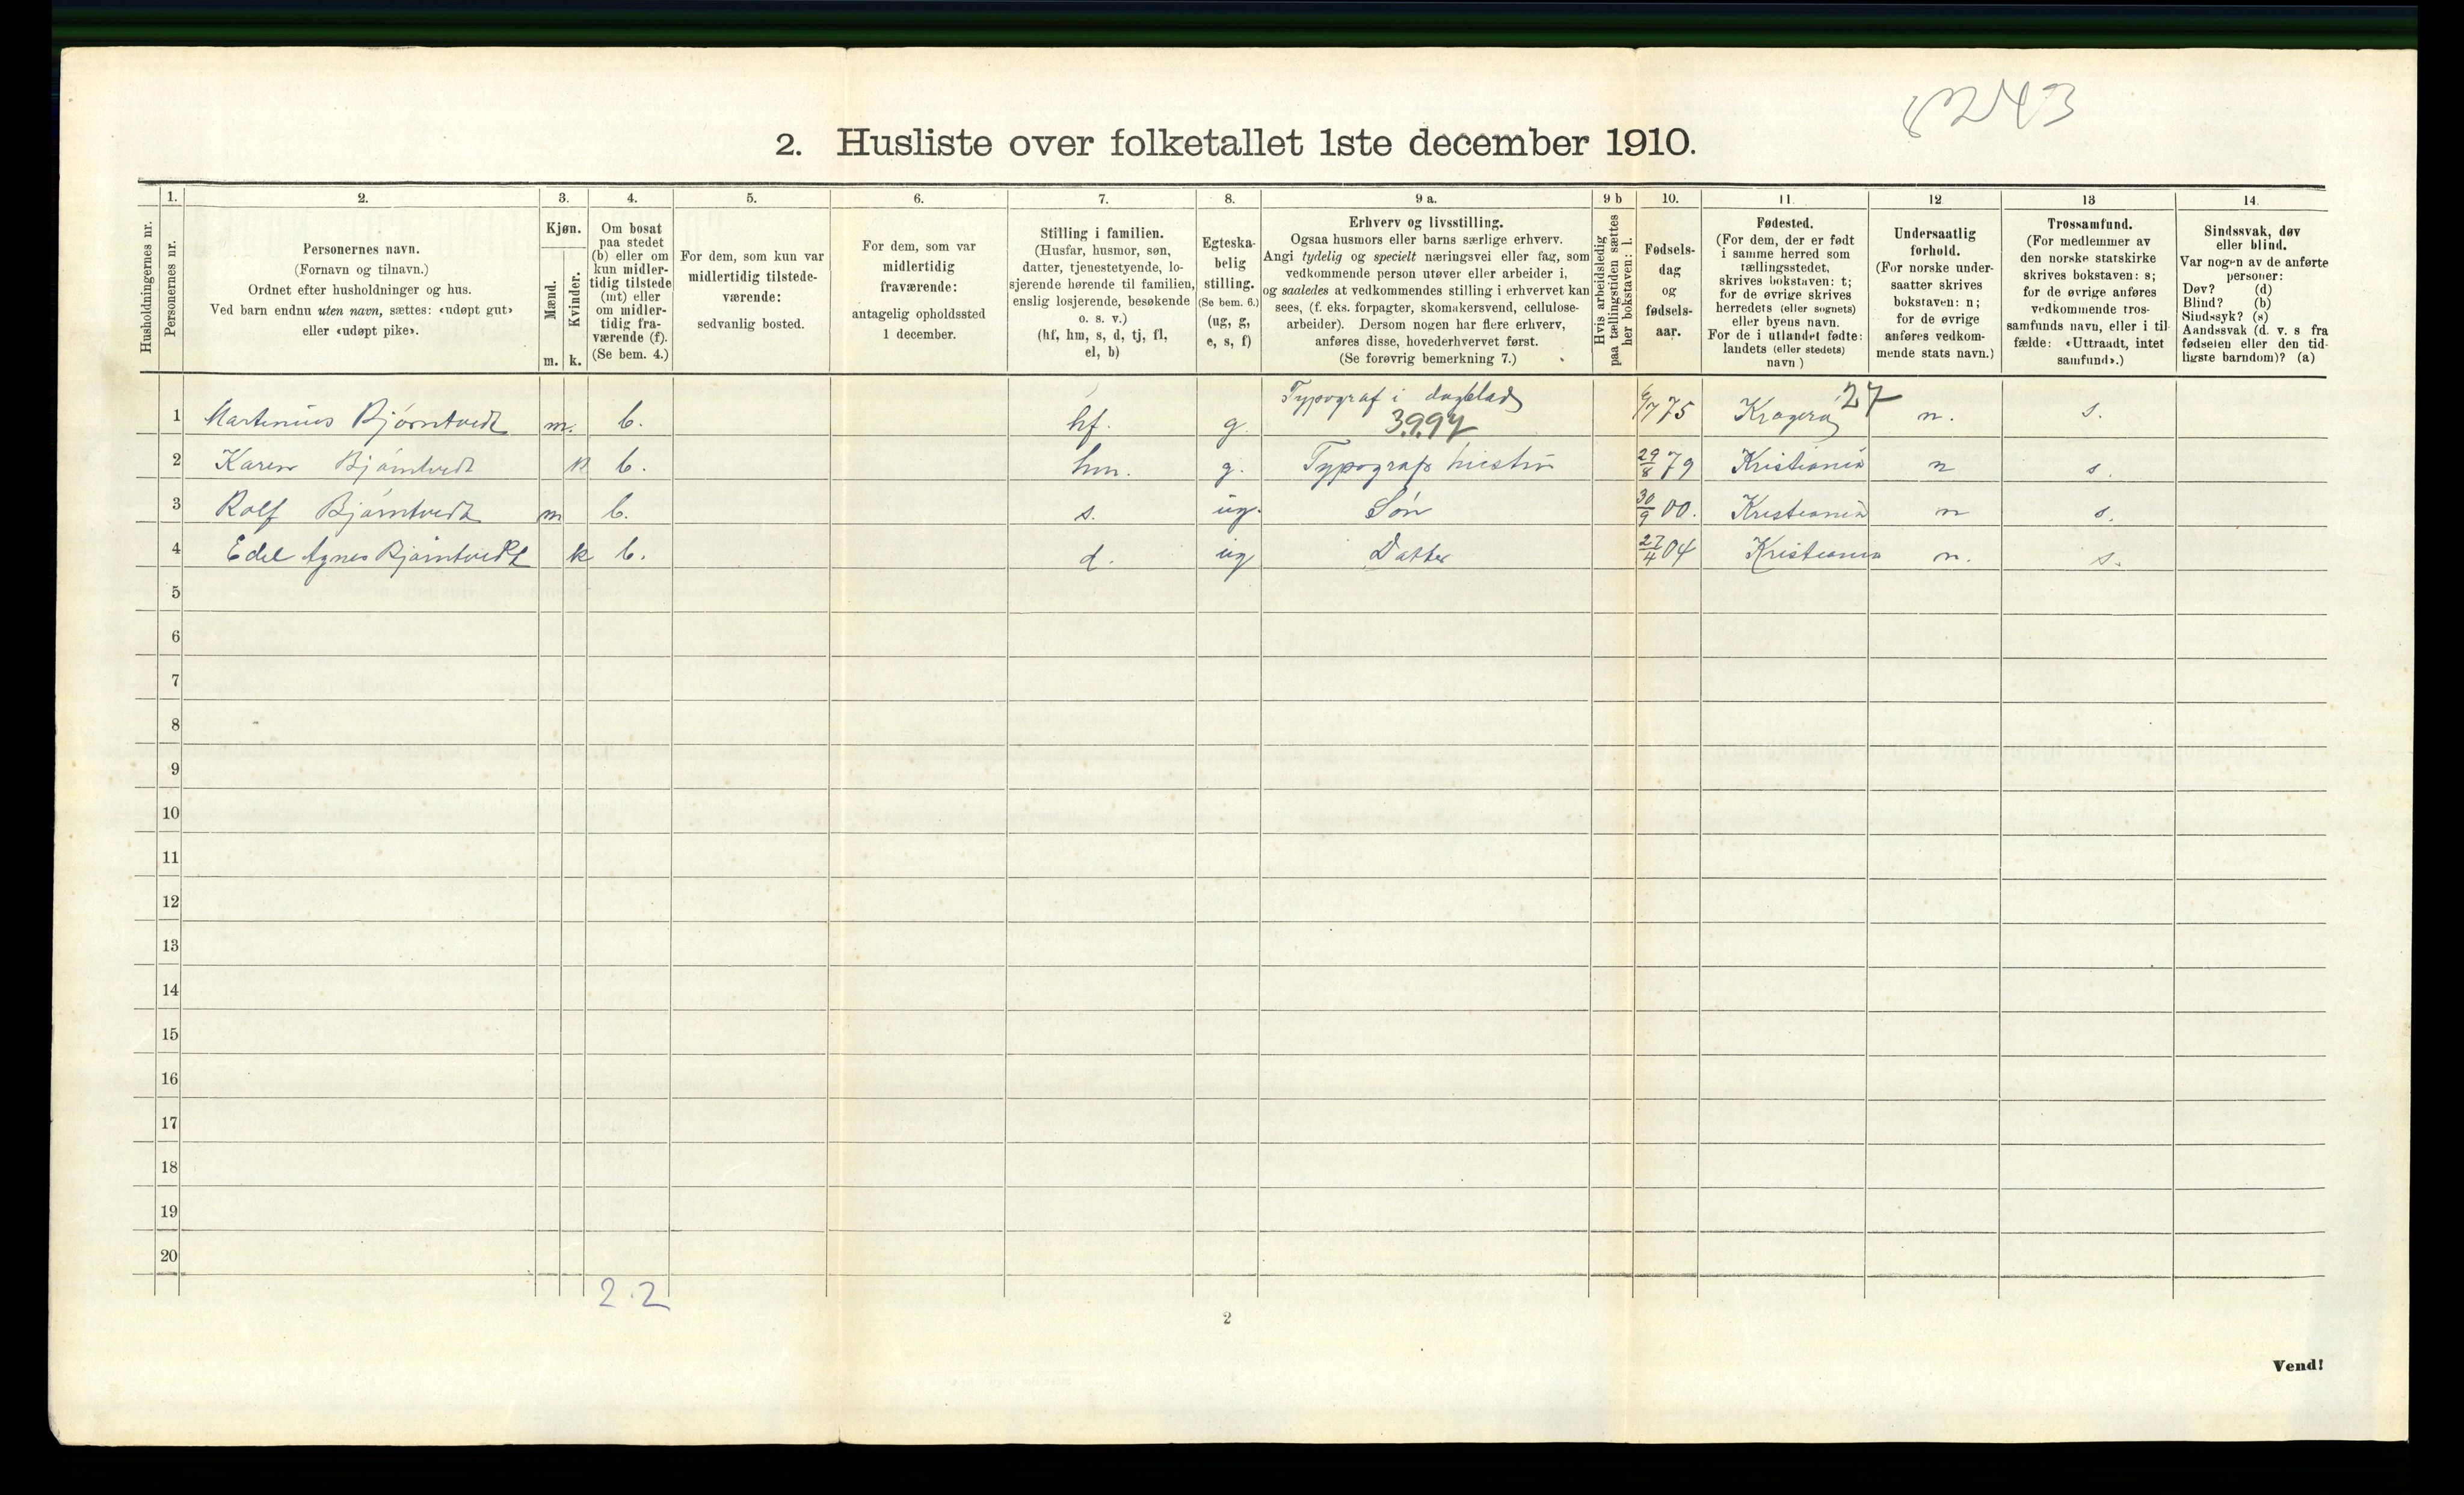 8243
2. Husliste over folketallet 1ste december 1910.
Husholdningernes nr.
1.
Personernes nr.
2.
Personernes navn.
(Fornavn og tilnavn.)
Ordnet efter husholdninger og hus.
Ved barn endnu uten navn, sættes: «udøpt gut»
eller «udøpt pike».
3.
Kjøn.
Mænd.
Kvinder.
m. k.
4.
Om bosat
paa stedet
(b) eller om
kun midler-
tidig tilstede
(mt) eller
om midler-
tidig fra-
værende (f).
(Se bem. 4.)
5.
For dem, som kun var
midlertidig tilstede-
værende:
sedvanlig bosted.
6.
For dem, som var
midlertidig
fraværende:
antagelig opholdssted
1 december.
7.
Stilling i familien.
(Husfar, husmor, søn,
datter, tjenestetyende, lo-
sjerende hørende til familien,
enslig losjerende, besøkende
o. s. v.)
(hf, hm, s, d, tj, fl,
el, b)
8.
Egteska-
belig
stilling.
(Se bem. 6.)
(ug, g,
e, s, f)
9 a.
Erhverv og livsstilling.
Ogsaa husmors eller barns særlige erhverv.
Angi tydelig og specielt næringsvei eller fag, som
vedkommende person utøver eller arbeider i,
og saaledes at vedkommendes stilling i erhvervet kan
sees, (f. eks. forpagter, skomakersvend, cellulose-
arbeider). Dersom nogen har flere erhverv,
anføres disse, hovederhvervet først.
(Se forøvrig bemerkning 7.)
9 b
Hvis arbeidsledig
paa tællingstiden sættes
her bokstaven: l.
10.
Fødsels-
dag
og
fødsels-
aar.
11.
Fødested.
(For dem, der er født
i samme herred som
tællingsstedet,
skrives bokstaven: t;
for de øvrige skrives
herredets (eller sognets)
eller byens navn.
For de i utlandet fødte:
landets (eller stedets)
navn)
12
Undersaatlig
forhold.
(For norske under-
saatter skrives
bokstaven: n;
for de øvrige
anføres vedkom-
mende stats navn.)
13
Trossamfund.
(For medlemmer av
den norske statskirke
skrives bokstaven: s;
for de øvrige anføres
vedkommende tros-
samfunds navn, eller i til-
fælde: «Uttraadt, intet
samfund».)
14.
Sindssvak, døv
eller blind.
Var nogen av de anførte
personer:
Døv? (d)
Blind? (b)
Sindssyk? (s)
Aandssvak (d. v. s fra
fødselen eller den tid-
ligste barndom)? (a)
1 Martinius Bjørntvedt m. b. hf. g. Typograf i dagblad 3994 6/7 75 Kragerø 27 n. s.
2 Karen Bjørntvedt k b. hm. g. Typograf hustru 29/8 79 Kristiania n s.
3 Rolf Bjørntvedt m b. s. ug. Søn 30/9 00. Kristiania n s.
4 Edel Agnes Bjørntvedt k b. d. ug Datter 27/4 04 Kristiania n. s.
5
6
7
8
9
10
11
12
13
14
15
16
17
18
19
20
2.2
2
Vend!